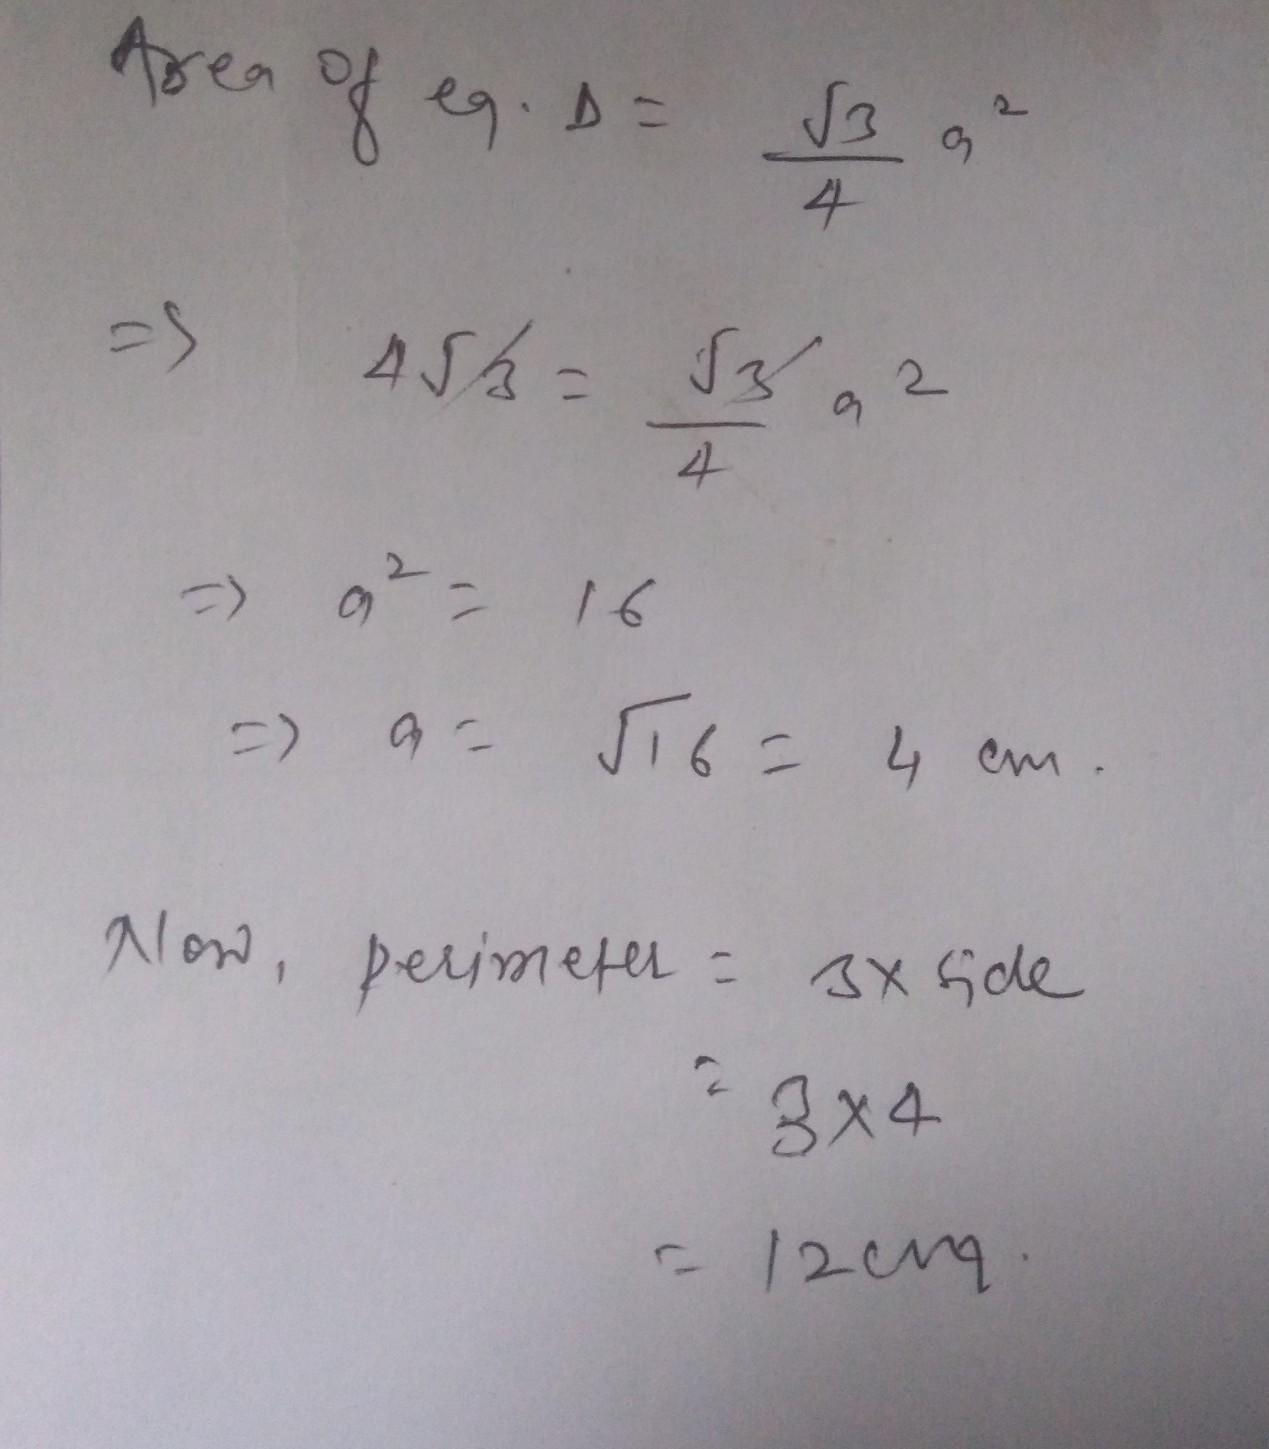 Area of eq. Δ = √3/4 a²
=> 4√3 = √3/4 a²
=> a² = 16
=> a = √16 = 4 cm.
Now, perimeter = 3 x side
= 3 x 4
= 12 cm.